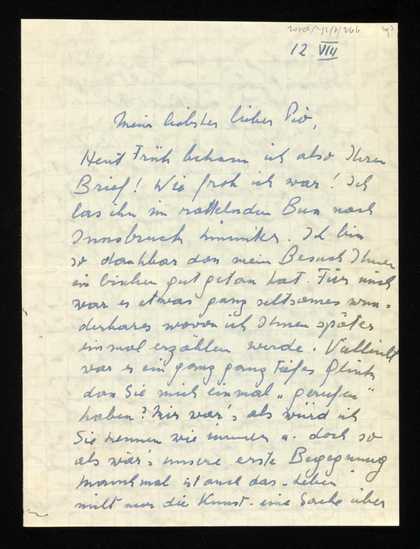 12 VIII
Mein liebster lieber Pio,
Heut Früh bekam ich also Ihren
Brief! Wie froh ich war! Ich
las ihn im ratternden Bus nach
Innsbruck hinunter. Ich bin
so dankbar dass mein Besuch Ihnen
ein bischen gut getan hat. Für mich
war es etwas ganz seltsames wun-
derbares wovon ich Ihnen später
einmal erzählen werde. Vielleicht
war es ein ganz ganz tiefes Glück
dass Sie mich einmal „gerufen"
haben? Mir war's als würd ich
Sie kennen wie immer u. doch so
als wär's unsere erste Begegnung
manchmal ist auch das Leben
nicht nur die Kunst - eine Sache über